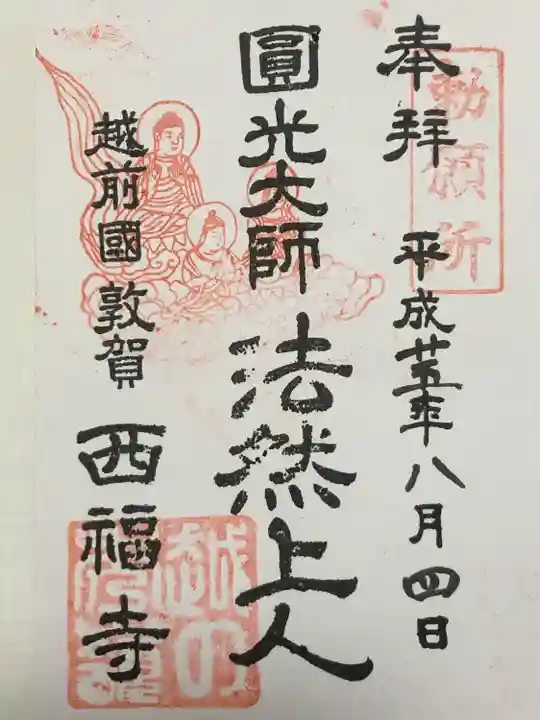 奉拝
勅願所
平成廿五年八月四日
圓光大師
法然上人
越前國敦賀
西福寺
越の